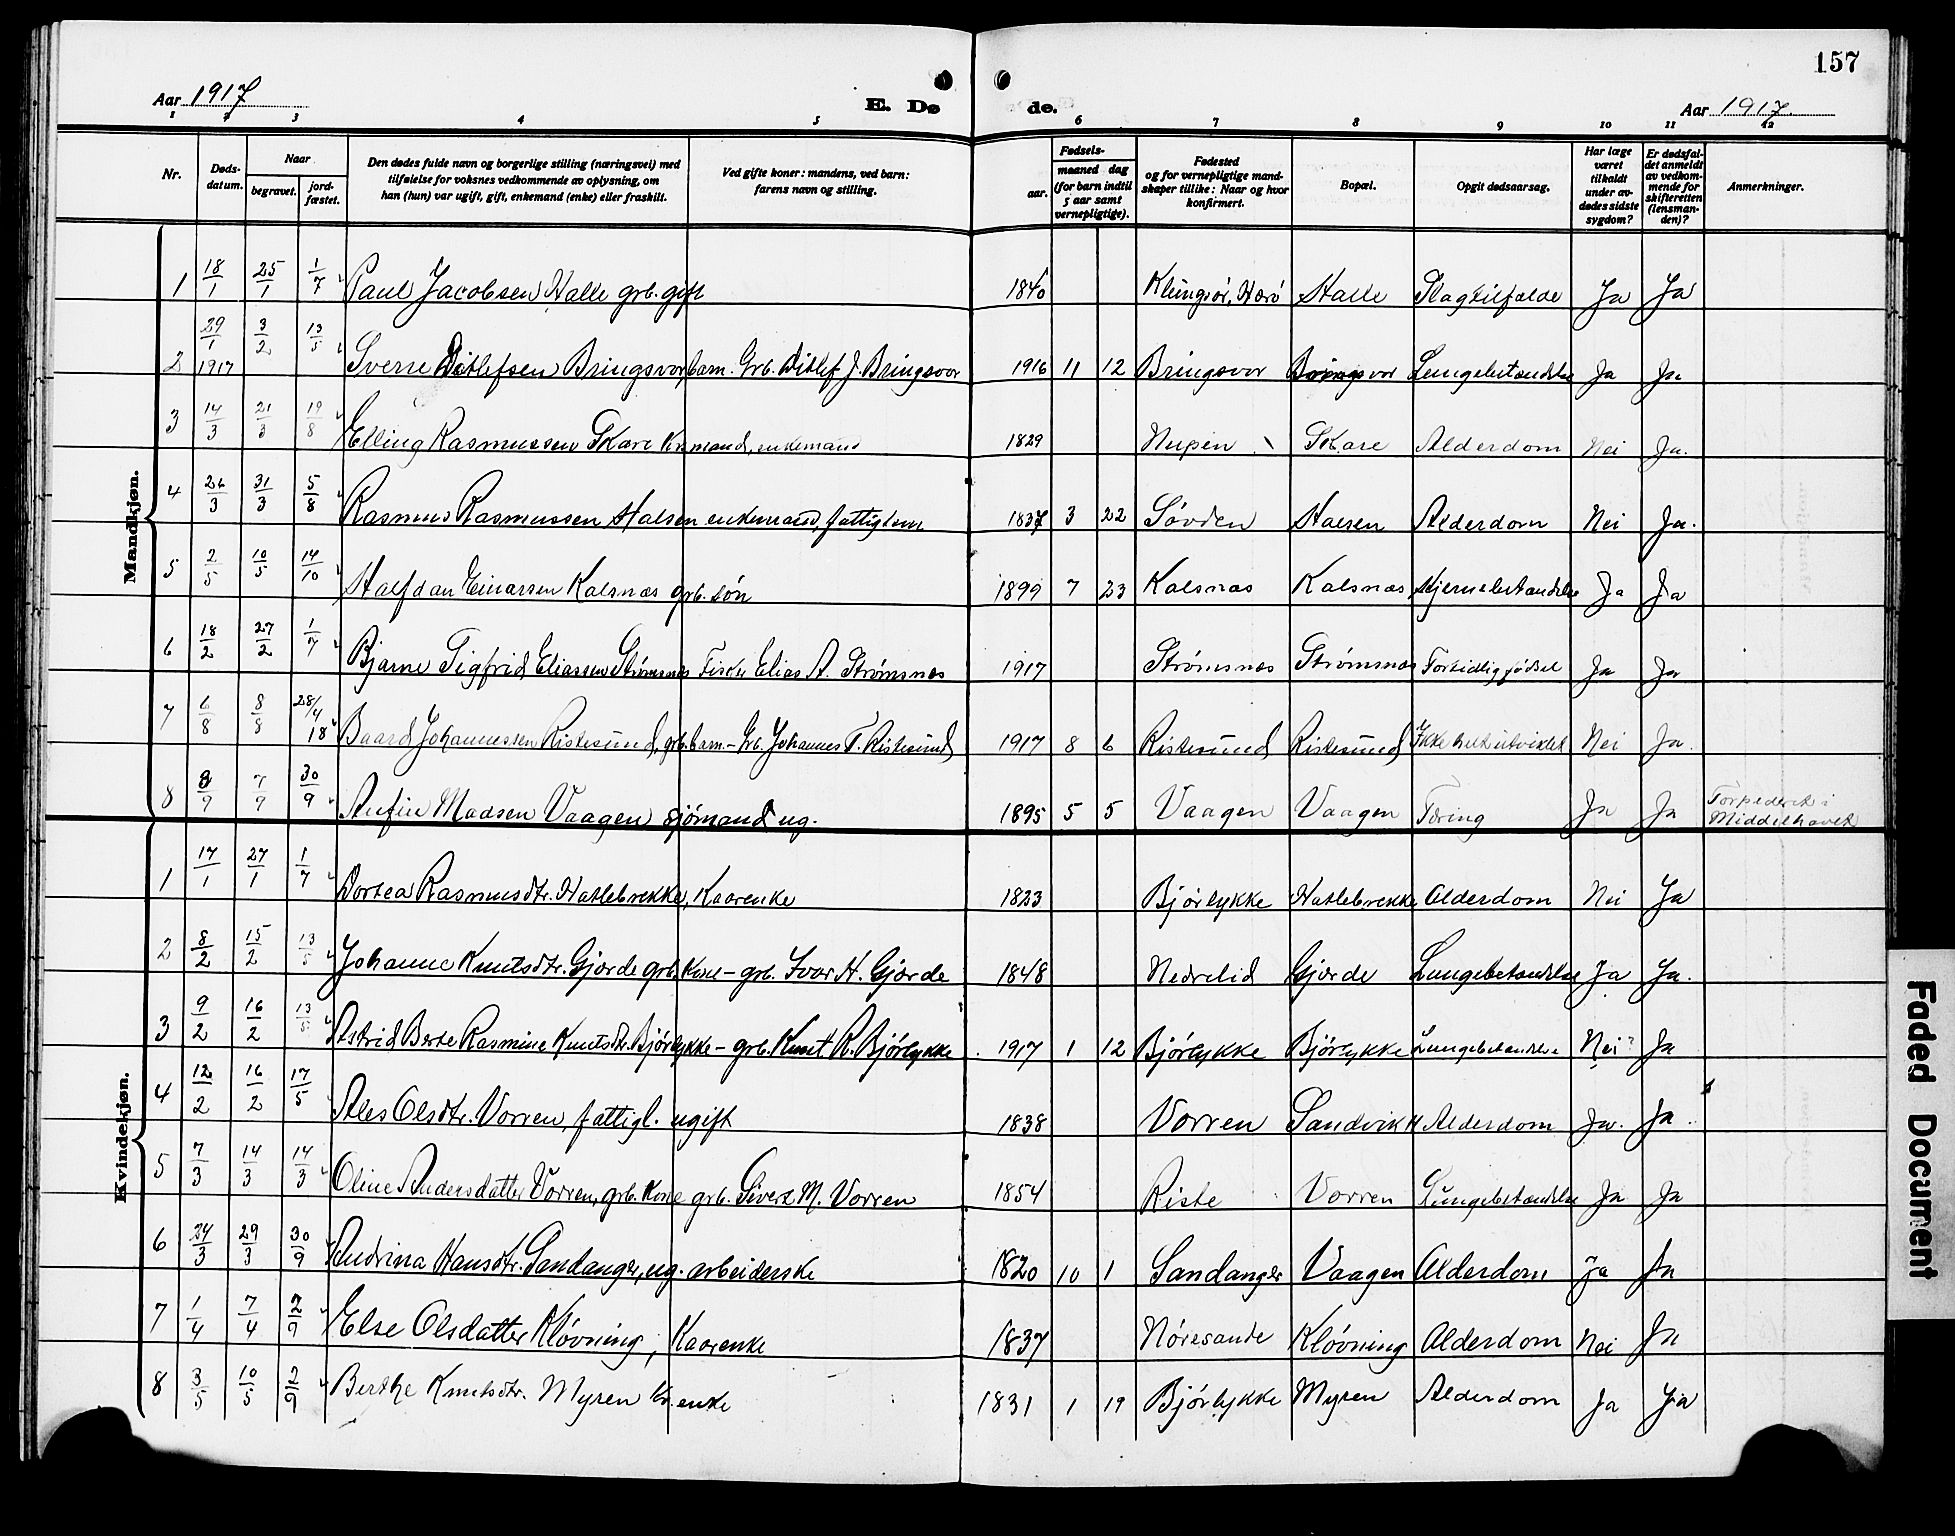 157
Aar 1917
E. Dø de.
Aar 1917.
1 2 3 4 5 6 7 8 9 10 11 12
Nr.
Døds-
datum.
Naar
begravet.
jord-
fæstet.
Den dødes fulde navn og borgerlige stilling (næringsvei) med
tilføielse for voksnes vedkommende av oplysning, om
han (hun) var ugift, gift, enkemand (enke) eller fraskilt.
Ved gifte koner: mandens, ved barn:
farens navn og stilling.
Fødsels-
aar.
maaned dag
(for barn indtil
5 aar samt
vernepligtige).
Fødested
og for vernepligtige mand-
skaper tillike: Naar og hvor
konfirmert.
Bopæl.
Opgit dødsaarsag.
Har læge
været
tilkaldt
under av-
dødes sidste
sygdom?
Er dødsfal-
det anmeldt
av vedkom-
mende for
skifteretten
(lensman-
den)?
Anmerkninger.
Mandkjøn.
1 18/1 25/1 1/7 Paul Jacobsen Halle grb. gift 1840 Klungsør, Herø Halle Slagtilfælde Ja Ja
2 29/1 1917 3/2 13/5 Sverre Ditlefsen Bringsvor, barn. Grb. Ditlef J. Bringsvor 1916 11 12 Bringsvor Bringsvor Lungebetændelse Ja Ja
3 14/3 21/3 19/8 Elling Rasmussen Skare Krmand, enkemand 1829 Nupen Skare Alderdom Nei Ja.
4 26/3 31/3 5/8 Rasmus Rasmussen Halsen enkemand, fattiglem 1837 3 22 Søvden Halsen Alderdom Nei Ja.
5 2/5 10/5 14/10 Halfdan Einarsen Kalsnæs grb. søn 1899 7 23 Kalsnæs Kalsnæs Hjernebetændelse Ja Ja
6 18/2 27/2 1/7 Bjarne Sigfrid Eliassen Strømsnes Fisker Elias A. Strømsnes 1917 Strømsnes Strømsnes Fortidlig fødsel Ja Ja
7 6/8 8/8 28/4 18 Baard Johannessen Ristesund, grb. barn. - Grb. Johannes T. Ristesund 1917 8 6 Ristesund Ristesund Ikke helt utviklet Nei Ja.
8 8/9 7/9 30/9 Anfin Madsen Vaagen sjømand ug. 1895 5 5 Vaagen Vaagen Tæring Ja Ja Torpedert i
Middelhavet
Kvindekjøn.
1 17/1 27/1 1/7 Dortea Rasmusdtr. Hatlebrekke, Kaarenke 1823 Bjørlykke Hatlebrekke Alderdom Nei Ja
2 8/2 15/2 13/5 Johanne Knutsdtr. Gjærde grb. Kone - grb. Ivar H. Gjærde 1848 Nedrelid Gjerde Lungebetændelse Ja Ja.
3 9/2 16/2 13/5 Astrid Berte Rasmine Knutsdtr. Bjørlykke - grb. Knut R. Bjørlykke 1917 1 12 Bjørlykke Bjørlykke Lungebetændelse Nei? Ja
4 12/2 16/2 17/5 Ales Olsdtr. Vorren, fattigl. ugift 1838 Vorren Sandvik Alderdom Ja. Ja.
5 7/3 14/3 14/3 Oline Andersdatter Vorren, grb. Kone grb. Sivert M. Vorren 1854 Riste Vorren Lungebetændelse Ja Ja
6 24/3 29/3 30/9 Andrina Hansdtr. Sandanger, ug. arbeiderske 1820 10 1 Sandanger Vaagen Alderdom Ja Ja
7 1/4 7/4 2/9 Else Olsdatter Kløvning, Kaarenke 1837 Nøresande Kløvning Alderdom Nei Ja
8 3/5 10/5 2/9 Berthe Knutsdtr. Myren Kr. enke 1831 1 19 Bjørlykke Myren Alderdom Ja Ja
Faded Document